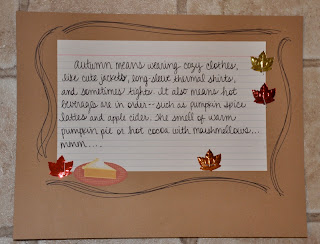 Autumn means wearing cozy clothes,
like cute jackets, long-sleeve thermal shirts,
and sometimes tights. It also means hot
beverages are in order--such as pumpkin spice
lattes and apple cider. The smell of warm
pumpkin pie or hot cocoa with marshmellows...
mmm....